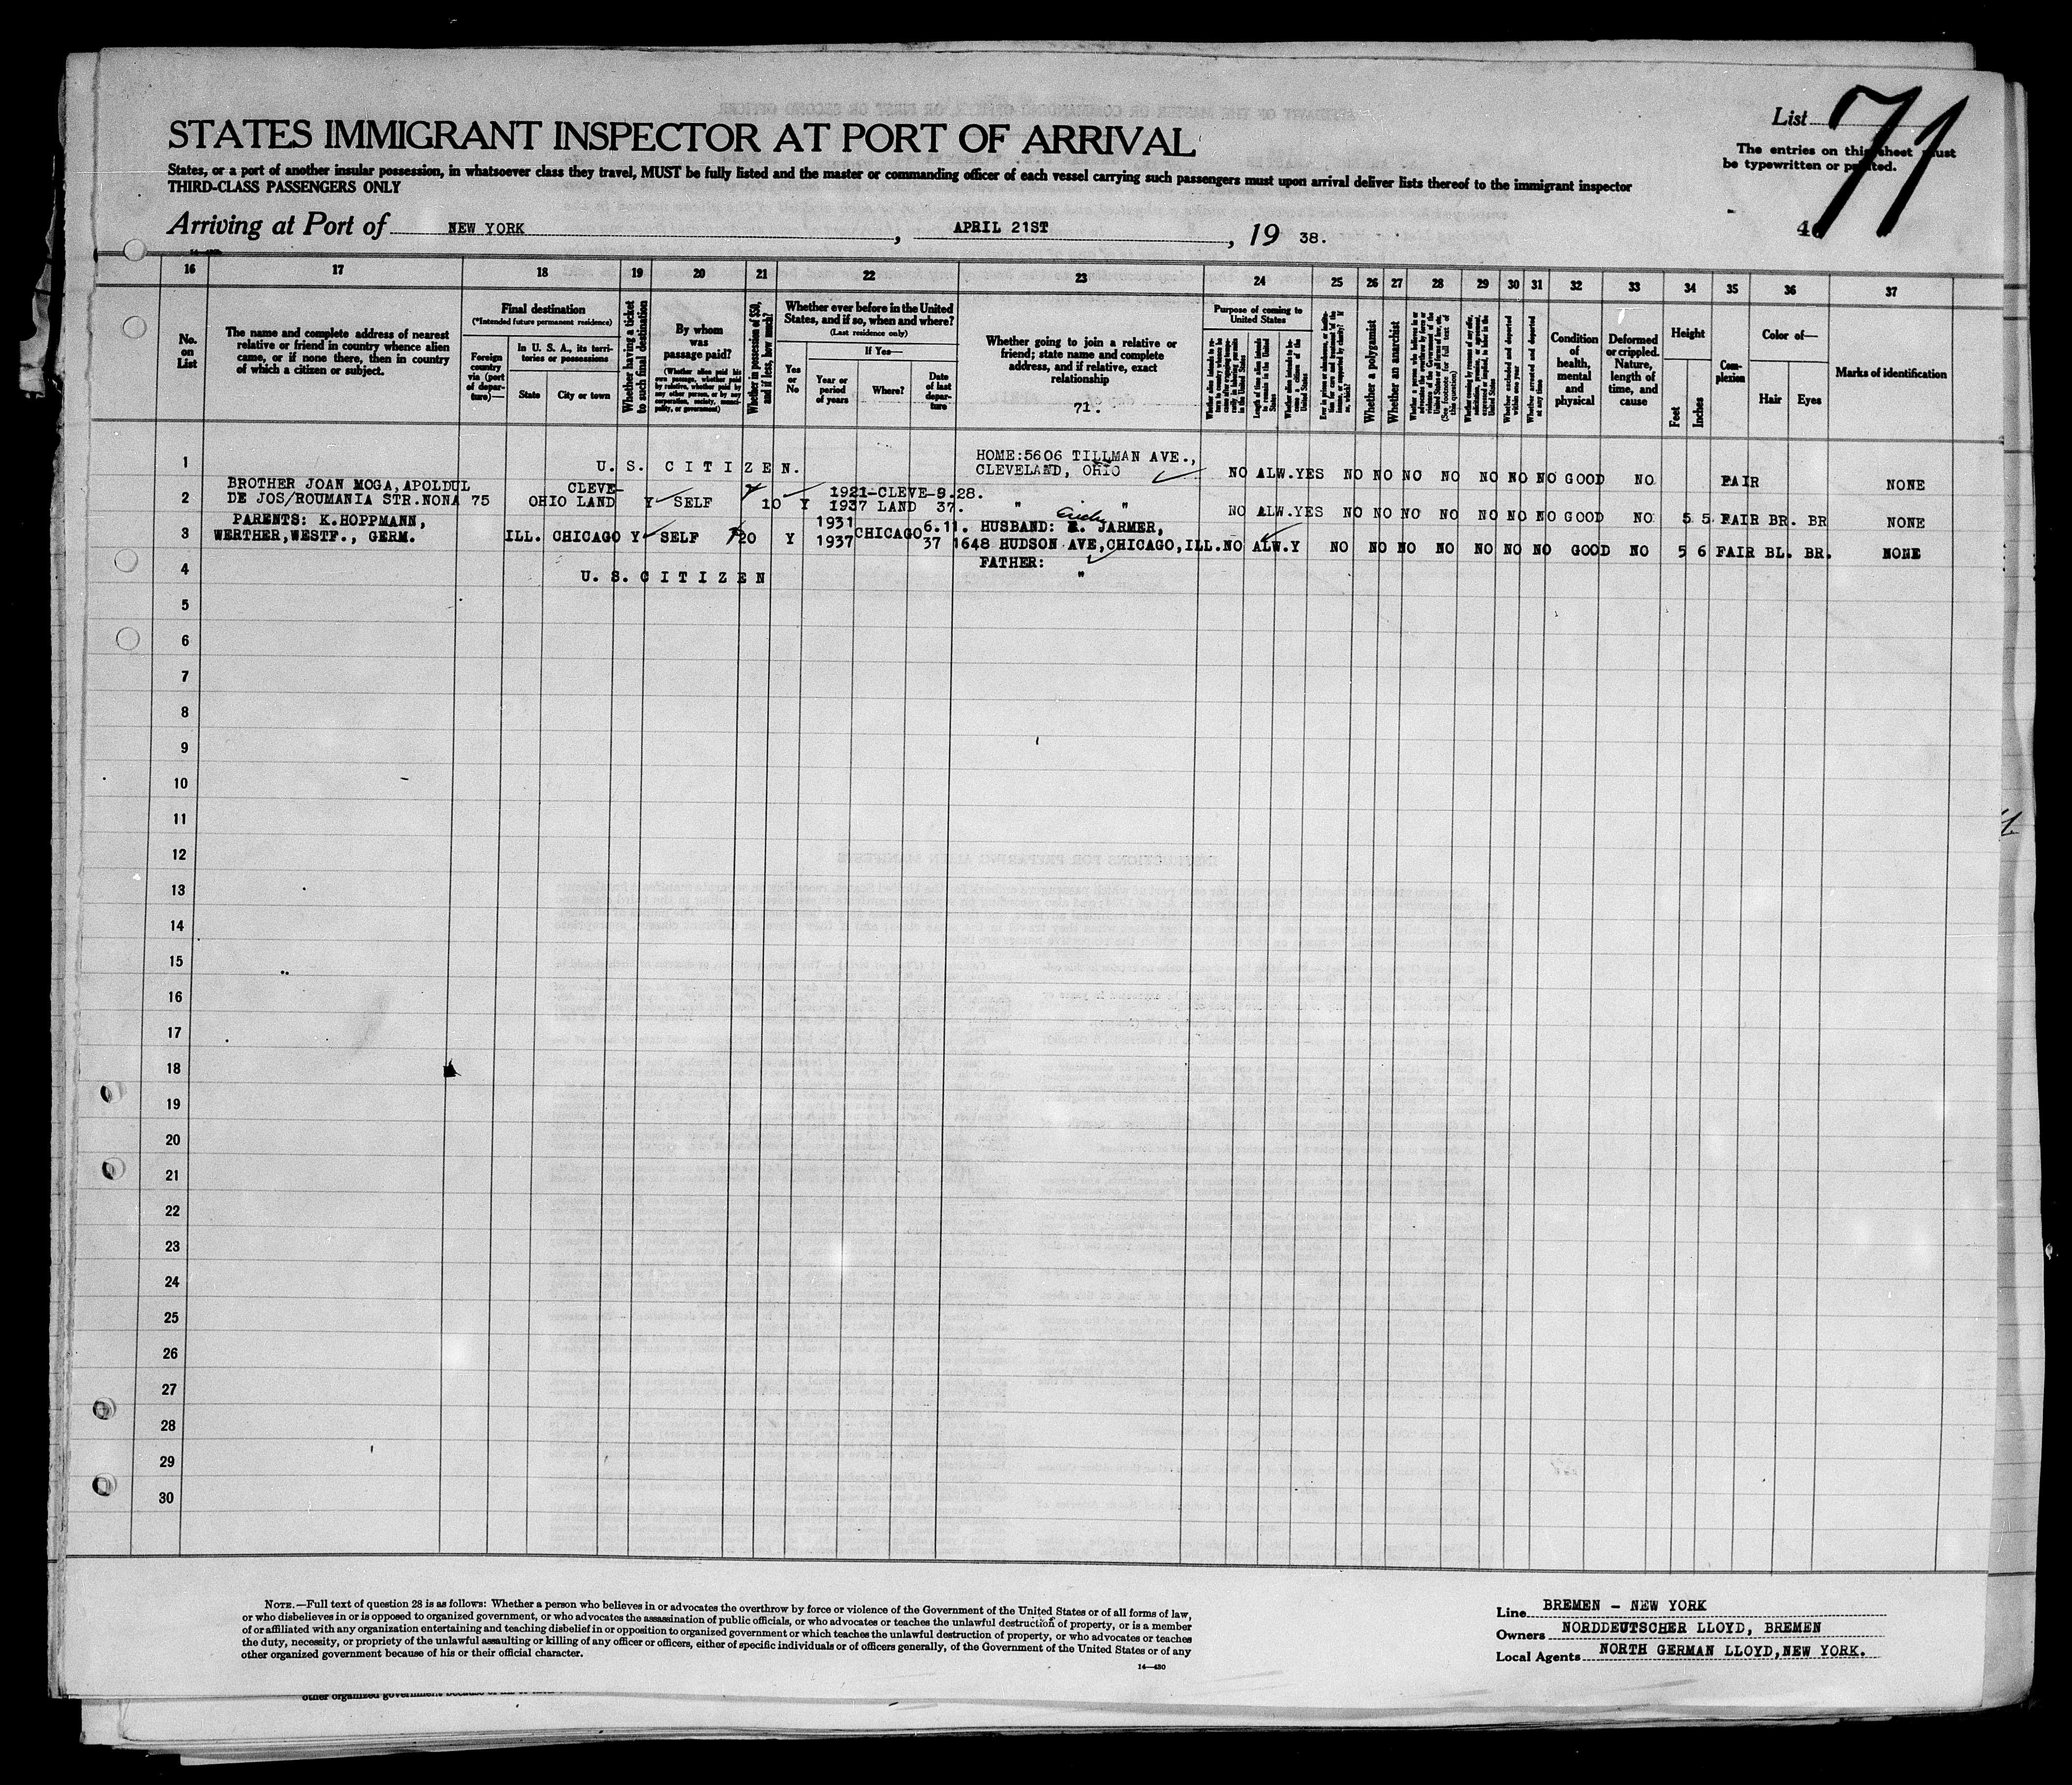 List 71
STATES IMMIGRANT INSPECTOR AT PORT OF ARRIVAL
The entries on this sheet must
be typewritten or printed.
States, or a port of another insular possession, in whatsoever class they travel, MUST be fully listed and the master or commanding officer of each vessel carrying such passengers must upon arrival deliver lists thereof to the immigrant inspector
THIRD-CLASS PASSENGERS ONLY
Arriving at Port of NEW YORK, APRIL 21ST, 19 38.
16 17 18 19 20 21 22 23 24 25 26 27 28 29 30 31 32 33 34 35 36 37
No. on List
The name and complete address of nearest
relative or friend in country whence alien
came, or if none there, then in country
of which a citizen or subject.
Final destination
(*Intended future permanent residence)
Foreign country via (port of departure)—
In U. S. A., its territories or possessions
State
City or town
Whether having a ticket to such final destination
By whom was passage paid?
(Whether alien paid his own passage, whether paid by relative, whether paid by any other person, or by any corporation, society, municipality, or government)
Whether in possession of $50, and if less, how much?
Whether ever before in the United
States, and if so, when and where?
(Last residence only)
Yes or No
If Yes—
Year or period of years
Where?
Date of last departure
Whether going to join a relative or
friend; state name and complete
address, and if relative, exact
relationship
71.
Purpose of coming to United States
Length of time alien intends to remain in the United States
Whether a polygamist
Whether an anarchist
(See footnote for full text of this question)
Whether excluded and deported within one year
Whether arrested and deported at any time
Condition of health, mental and physical
Deformed or crippled. Nature, length of time, and cause
Height
Feet
Inches
Complexion
Color of—
Hair
Eyes
Marks of identification
1 U. S. CITIZEN. HOME:5606 TILLMAN AVE., CLEVELAND, OHIO NO ALW.YES NO NO NO NO NO NO NO GOOD NO FAIR NONE
BROTHER JOAN MOGA, APOLDUL CLEVE- 1921-CLEVE-9.28.
2 DE JOS/ROUMANIA STR.NONA 75 OHIO LAND Y SELF 10 Y 1937 LAND 37. " " NO ALW.YES NO NO NO NO NO NO NO GOOD NO 5 5 FAIR BR. BR NONE
PARENTS: K.HOPPMANN, 1931 6.11. HUSBAND: E. JARMER,
3 WERTHER,WESTF., GERM. ILL. CHICAGO Y SELF 20 Y 1937 CHICAGO 37 1648 HUDSON AVE,CHICAGO,ILL. NO ALW.Y NO NO NO NO NO NO NO GOOD NO 5 6 FAIR BL. BR. NONE
FATHER:
4 U. S. CITIZEN "
5
6
7
8
9
10
11
12
13
14
15
16
17
18
19
20
21
22
23
24
25
26
27
28
29
30
NOTE.—Full text of question 28 is as follows: Whether a person who believes in or advocates the overthrow by force or violence of the Government of the United States or of all forms of law,
or who disbelieves in or is opposed to organized government, or who advocates the assassination of public officials, or who advocates or teaches the unlawful destruction of property, or is a member
of or affiliated with any organization entertaining and teaching disbelief in or opposition to organized government or which teaches the unlawful destruction of property, or who advocates or teaches
the duty, necessity, or propriety of the unlawful assaulting or killing of any officer or officers, either of specific individuals or of officers generally, of the Government of the United States or of any
other organized government because of his or their official character.
14—430
Line BREMEN - NEW YORK
Owners NORDDEUTSCHER LLOYD, BREMEN
Local Agents NORTH GERMAN LLOYD,NEW YORK.